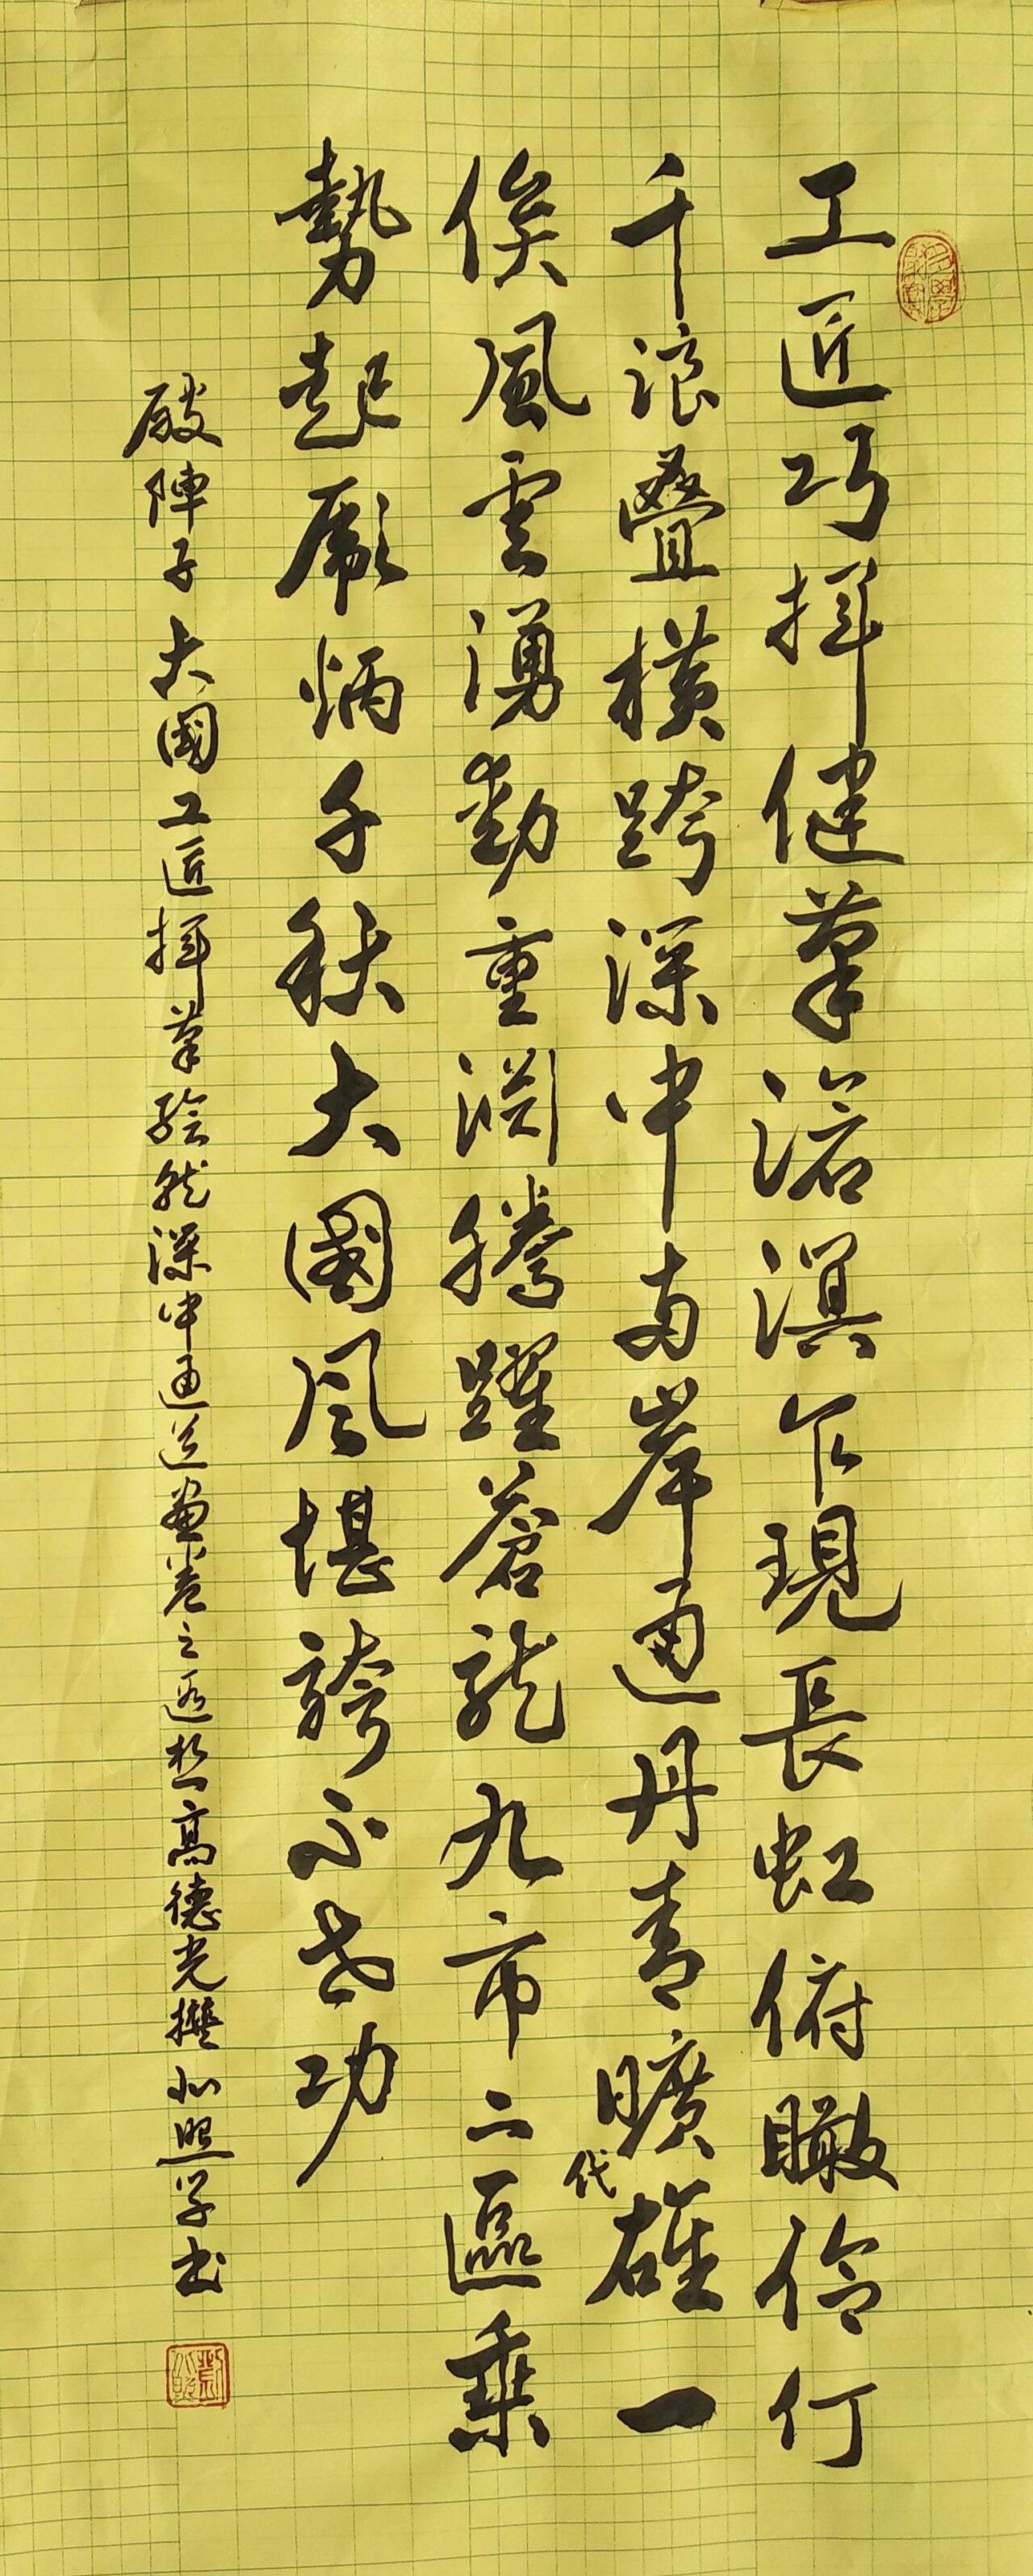 工匠巧揮健筆涪溟乍現長虹俯瞰伶仃
千浪疊橫跨深中兩岸通丹青曠代雄一
俟風雲湧動重淵騰躍蒼龍九市二區乘
勢起彪炳千秋大國風堪誇不世功
破陣子大國工匠揮筆繪就深中通道畫卷之遐想高德光撰照学书